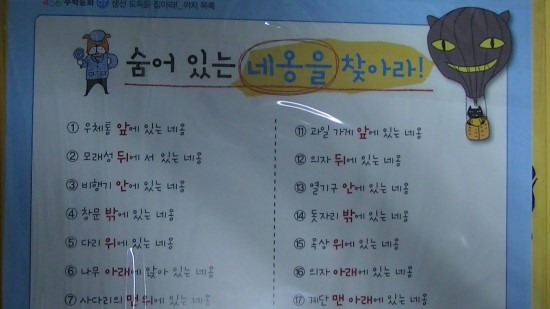 수학동화 생선 도둑을 잡아라!_위치 목록
숨어 있는 네옹을 찾아라!
① 우체통 앞에 있는 네옹
② 모래성 뒤에 서 있는 네옹
③ 비행기 안에 있는 네옹
④ 창문 밖에 있는 네옹
⑤ 다리 위에 있는 네옹
⑥ 나무 아래에 앉아 있는 네옹
⑦ 사다리의 맨 위에 있는 네옹
⑪ 과일 가게 앞에 있는 네옹
⑫ 의자 뒤에 있는 네옹
⑬ 열기구 안에 있는 네옹
⑭ 돗자리 밖에 있는 네옹
⑮ 옥상 위에 있는 네옹
⑯ 의자 아래에 있는 네옹
⑰ 계단 맨 아래에 있는 네옹